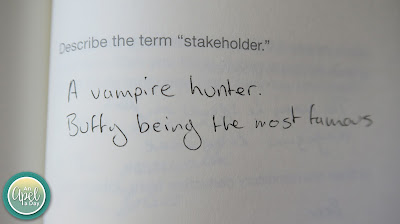 Describe the term "stakeholder."
A vampire hunter.
Buffy being the most famous
An
Apel
a Day